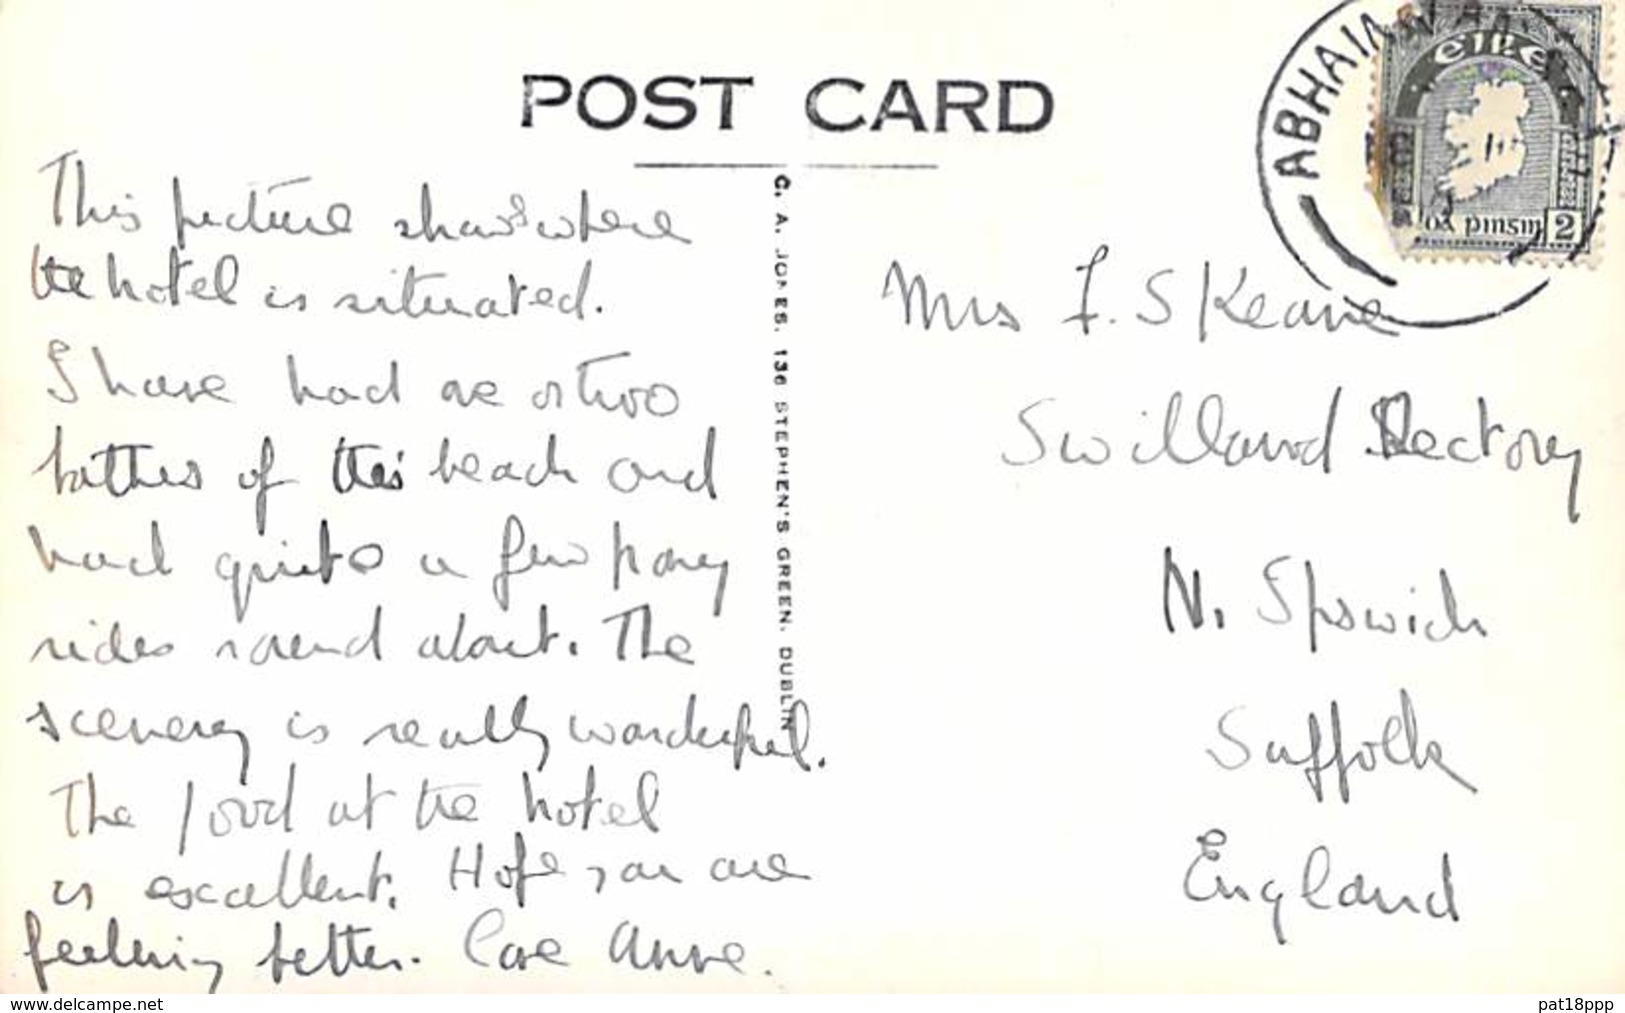 POST CARD
This picture shows where
the hotel is situated.
I have had one or two
bathes of this beach and
had quite a few pony
rides round about. The
scenery is really wonderful.
The food at the hotel
is excellent. Hope you are
feeling better. Love Anne.
C. A. JONES. 136 STEPHEN'S GREEN. DUBLIN
Mrs F. S Keane
Swilland Rectory
N. Ipswich
Suffolk
England
ABHAIN
éire
pinsin 2
www.delcampe.net
pat18ppp